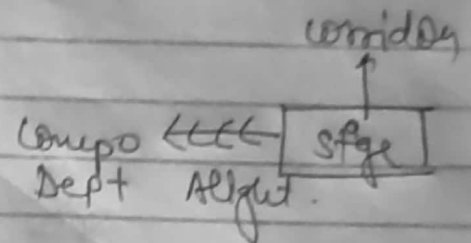 corridor
Compo
stge
Dept Alight.